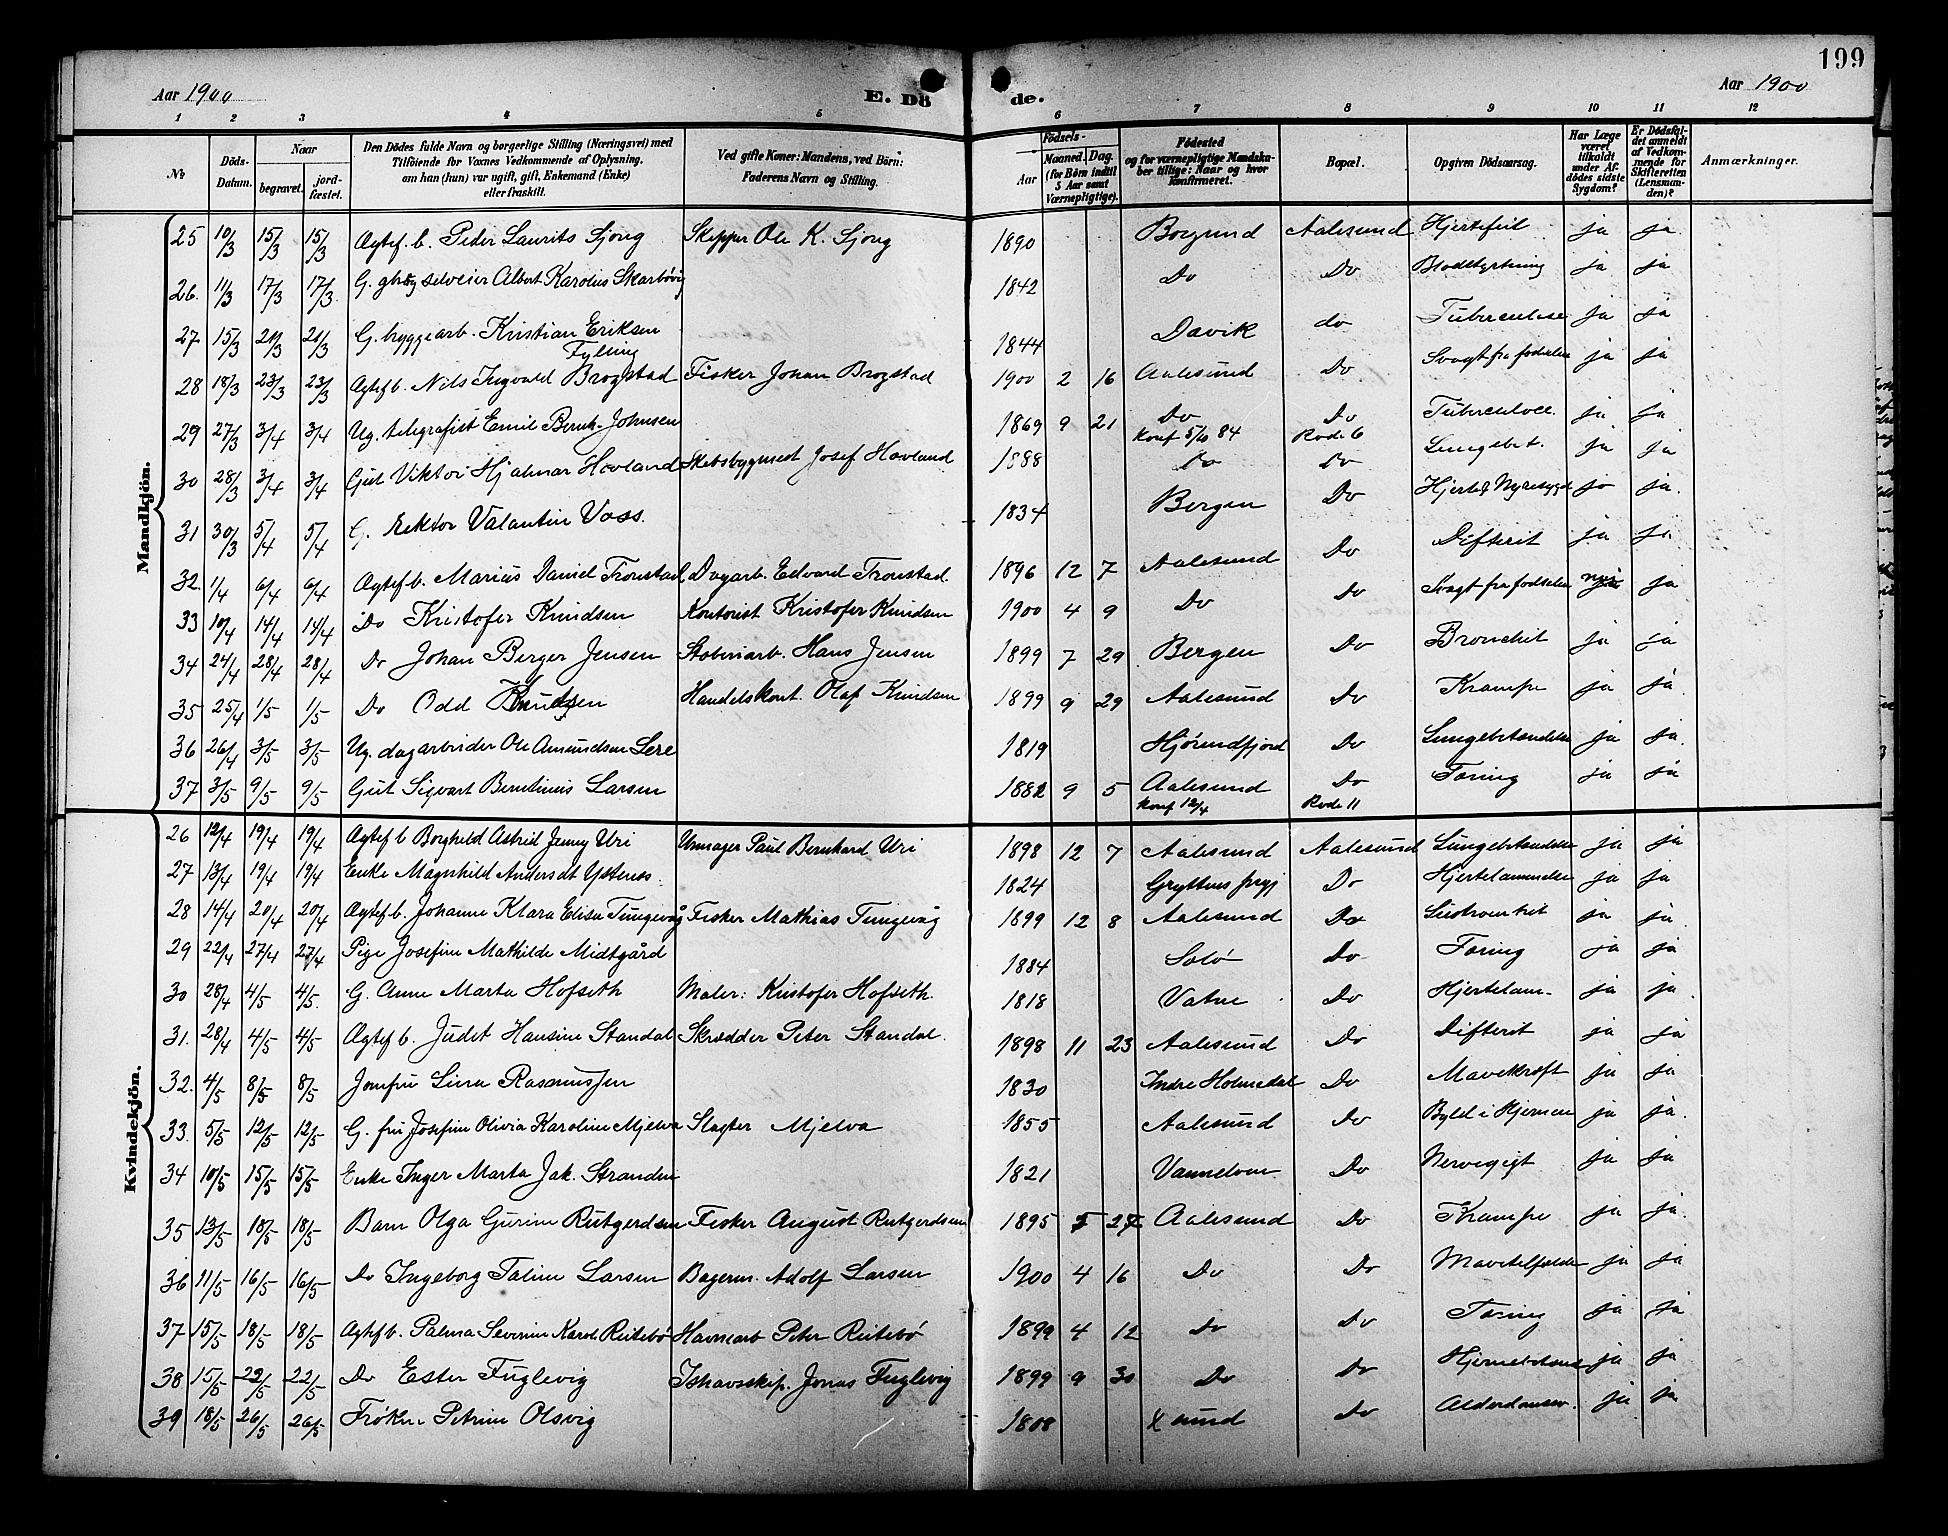 199
Aar 1900 E. Dö de. Aar 1900
1 2 3 4 5 6 7 8 9 10 11 12
No Döds-Datum. Naar begravet. jord-fæstet. Den Dödes fulde Navn og borgerlige Stilling (Næringsvei) med Tilföiende for Voxnes Vedkommende af Oplysning, om han (hun) var ugift, gift, Enkemand (Enke) eller fraskilt. Ved gifte Koner: Mandens, ved Börn: Faderens Navn og Stilling. Födsels- Aar Maaned. Dag. (for Börn indtil 5 Aar samt Værnepligtige). Födested og for værnepligtige Mandska-ber tillige: Naar og hvor Konfirmeret. Bopæl. Opgiven Dödsaarsag. Har Læge været tilkaldt under Af-dödes sidste Sygdom? Er Dödsfal-det anmeldt af Vedkom-mende for Skifteretten (Lensman-den)? Anmærkninger.
Mandkjön.
25 10/3 15/3 15/3 Ægtef. b. Peder Laurits Sjong Skipper Ole K. Sjong 1890 Borgund Aalesund Hjertefeil ja ja
26. 11/3 17/3 17/3. G. Albert Karolius Skarbøvig 1842 Do Do ja ja
27 15/3 20/3 20/3 G. bryggearb. Kristian Eriksen Fylling 1844 Davik do Tuberculose ja ja
28 18/3 23/3 23/3 Ægtef b. Nils Ingvald Brogstad Fisker Johan Brogstad 1900 2 16 Aalesund Do Svagt fra fødselen ja ja
29 27/3 3/4 3/4 Ug. telegrafist Emil Bernh. Johnsen 1869 9 21 Do Konf 5/10 84 Do Rode 6 ja ja
30 28/3 3/4 3/4 Gut Viktor Hjalmar Hovland Josef Hovland 1888 Do Do Lungebet. ja ja
31 30/3 5/4 5/4 G. Rektor Valantin Voss. 1834 Bergen Do Hjerte & Nyresygd ja ja.
32. 1/4 6/4 6/4 Ægtef b. Marius Daniel Tronstad Dagarb. Edvard Tronstad. 1896 12 7 Aalesund Do Difterit ja ja
33 10/4 14/4 14/4 Do Kristofer Knudsen Kontorist Kristofer Knudsen 1900 4 9 Do Do Svagt fra fødselen nei ja
34 24/4 28/4 28/4 Do Johan Berger Jensen Hans Jensen 1899 7 29 Bergen Do Bronchit ja ja
35 25/4 1/5 1/5 Do Odd Knudsen Handelskont. Olaf Knudsen 1899 9 29 Aalesund Do Krampe ja ja.
36 26/4 3/5 3/5 Ug. dagarbeider Ole Amundsen Lere 1819 Hjørundfjord Do Lungebetændelse ja ja.
37 3/5 9/5 9/5 Gut Sigvart Berntinus Larsen 1882 9 5 Aalesund konf 12/4 Do Rode 11 Tæring ja ja
Kvindekjön.
26 12/4 19/4 19/4 Ægtef b Borghild Astrid Jenny Uri Urmager Paul Bernhard Uri 1898 12 7 Aalesund Aalesund Lungebetændelse ja ja
27 13/4 19/4 19/4 Enke Magnhild Andersdt Ystenes. 1824 Gryttens prgj Do Hjertelammelse ja ja
28 14/4 20/4 20/4 Ægtef. b. Johanne Klara Elise Tungevåg Fisker Mathias Tungevåg 1899 12 8 Aalesund Do ja ja
29 22/4 27/4 27/4 Pige Josefine Mathilde Midtgård 1884 Do Tæring ja ja
30 28/4 4/5 4/5. G. Anne Marta Hofseth Maler: Kristofer Hofseth. 1818 Vatne Do Hjertelam- ja ja.
31. 28/4 4/5 4/5 Ægtef b. Judet Hansine Standal Skrædder Peter Standal. 1898 11 23 Aalesund Do Difterit ja ja
32. 4/5 8/5 8/5 Jomfru Lina Rasmussen 1830 Indre Holmedal Do Mavekræft ja ja
33. 5/5 12/5 12/5 G. fru Josefine Olivia Karoline Mjelva Slagter Mjelva 1855 Aalesund Do Byld i Hjernen ja ja.
34 10/5 15/5 15/5 Enke Inger Marta Jak. Stranden 1821 Vannelven Do Nervegigt ja ja
35 13/5 18/5 18/5 Barn Olga Gurine Rutgerdsen Fisker August Rutgerdsen 1895 5 27 Aalesund Do Krampe ja ja.
36 11/5 16/5 16/5 Do Ingeborg Taline Larsen Bagerm. Adolf Larsen 1900 4 16 Do Do ja ja
37 15/5 18/5 18/5 Ægtef b. Palma Severine Karol. Reitebø Havnearb Peter Reitebø 1899 4 12 Do Do Tæring ja ja
38 15/5 22/5 22/5 Do Ester Fuglevig Ishavsskip. Jonas Fuglevig 1899 9 30 Do Do ja ja
39 18/5 26/5 26/5 Frøken Petrine Olsvig 1808 X sund Do ja ja